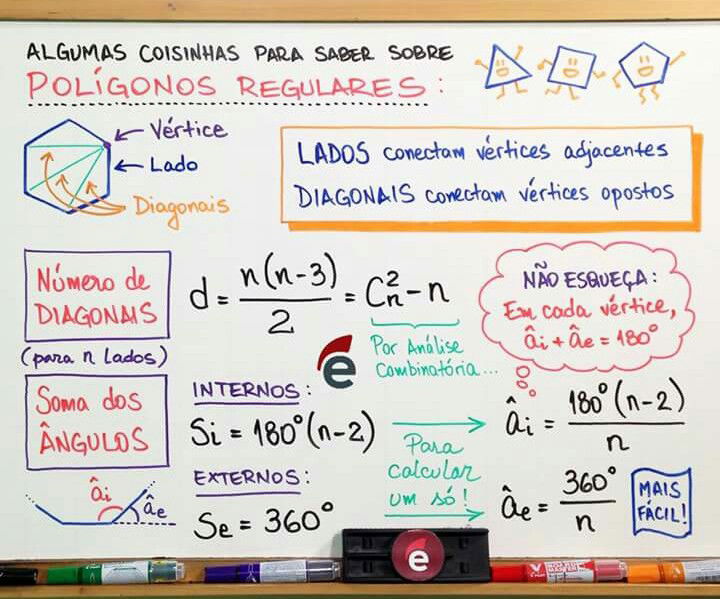 ALGUMAS COISINHAS PARA SABER SOBRE
POLÍGONOS REGULARES:
Vértice
Lado
Diagonais
LADOS conectam vértices adjacentes
DIAGONAIS conectam vértices opostos
Número de
DIAGONAIS
(para n Lados)
d = n(n-3)/2 = C²n - n
Por Análise
Combinatória...
NÃO ESQUEÇA:
Em cada vértice,
âi + âe = 180°
Soma dos
ÂNGULOS
INTERNOS:
Si = 180°(n-2)
EXTERNOS:
Se = 360°
Para
calcular
um só!
âi = 180°(n-2)/n
âe = 360°/n
MAIS
FÁCIL!
âi
âe
e
e